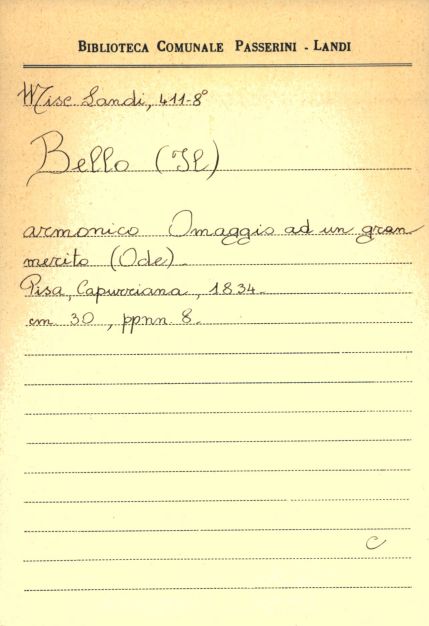 BIBLIOTECA COMUNALE PASSERINI - LANDI
Misc Landi, 411-8°
Bello (Il)
armonico Omaggio ad un gran
merito (Ode).
Pisa, Capurriana, 1834.
cm 30, ppnn 8.
C